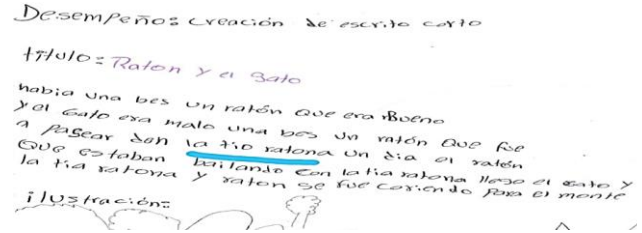 Desempeño: creación de escrito corto
título: Raton y el gato
habia una bes un ratón que era Bueno
y el Gato era malo una bes un ratón que fue
a pasear don la tio ratona un dia el ratón
Que estaban bailando con la tia ratona llego el gato y
la tia ratona y raton se fue coriendo para el monte
ilustración: